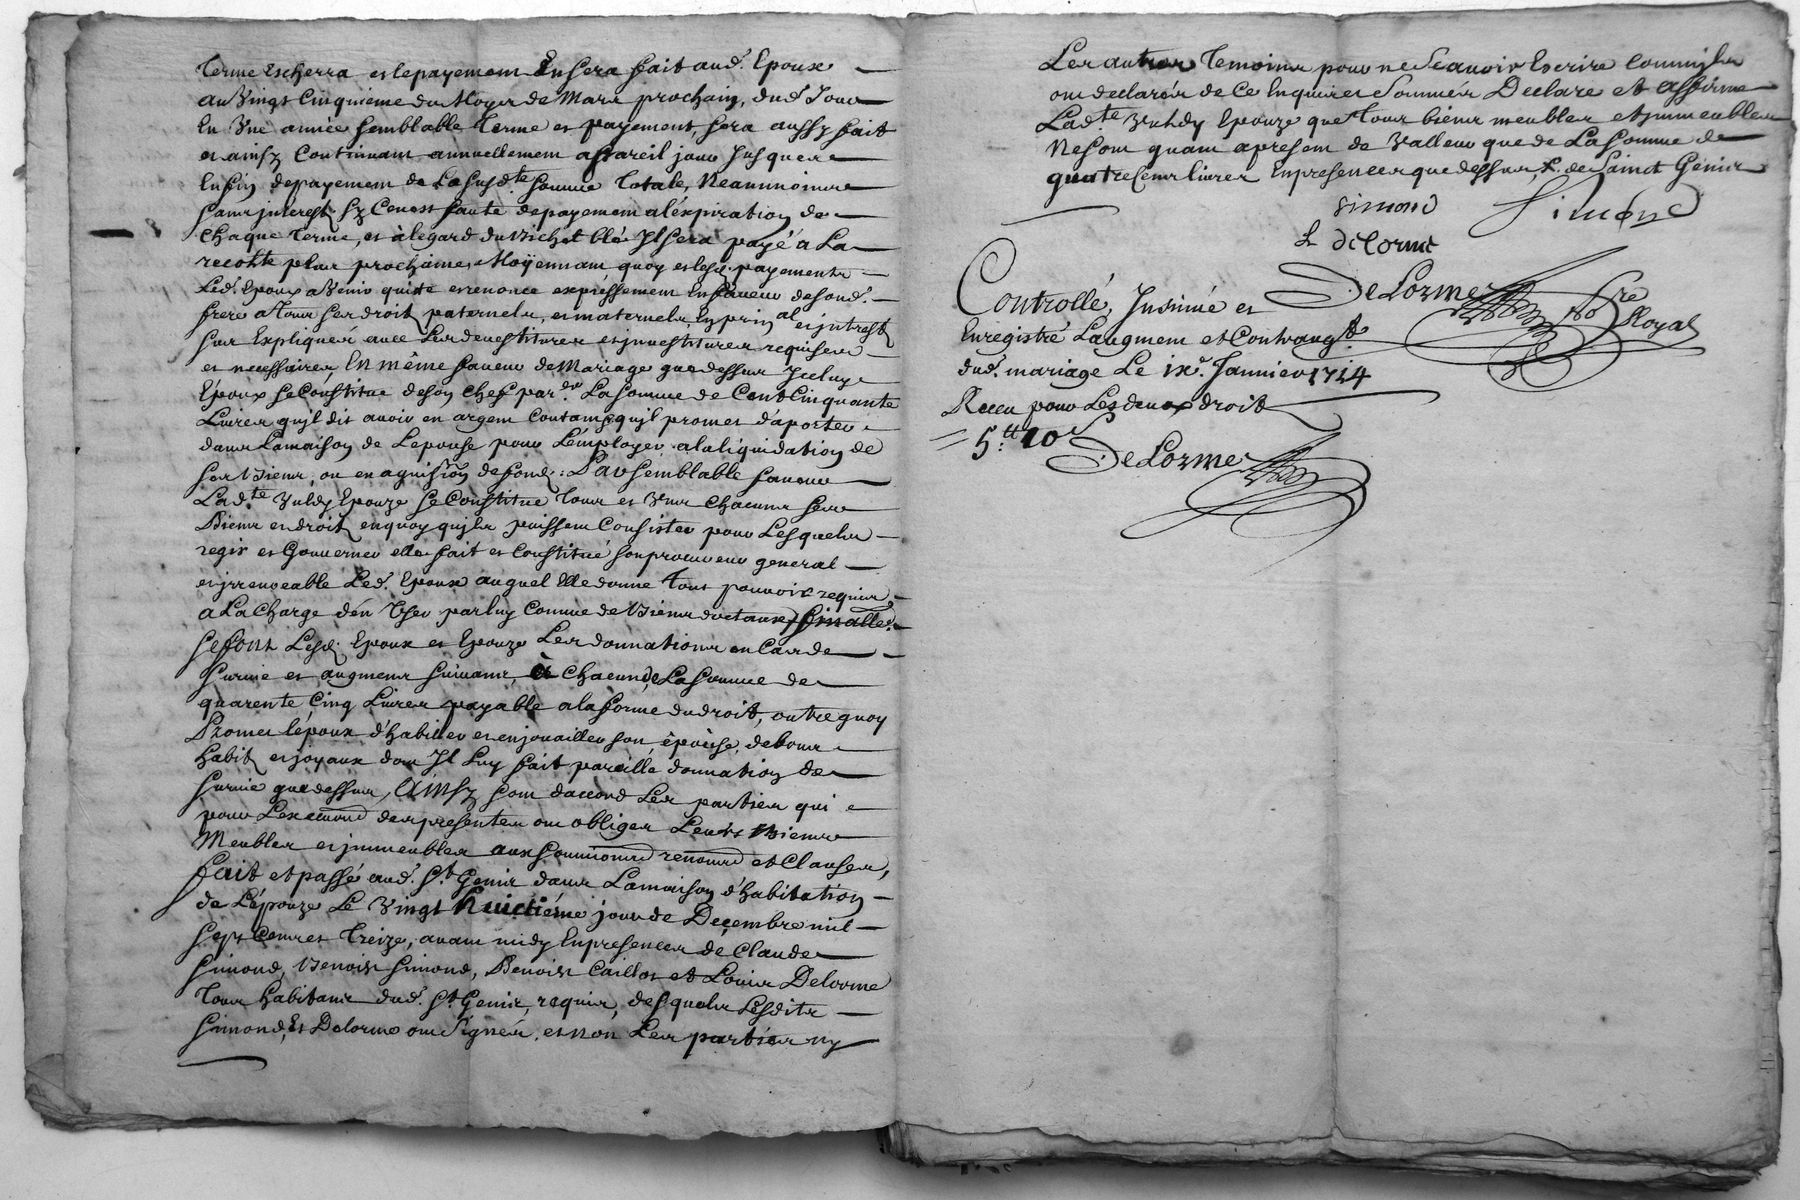 Terme Escherra et le payement En sera fait aud. Epoux
au Vingt Cinquieme du Moyer de Mars prochain, dud. Jour
En Une année semblable Terme et payement, sera aussy fait
et ainsy Continuant annuellement a pareil jour Jusques
Enfin depayement de La susd.te somme Totale, Neanmoins
sans jnterest sy Ce nest faute depayement a léxpiration de
Chaque Terme, et à légard du Bichet blé Jl sera payé a La
recolte plus prochaine, Moÿennant quoy et lesd. payements
Led. Epoux a Venir quite et renonce expressement En faveur de sond.
frere a Tous ses droits paternels, et maternels, En prin.al et jntrests
sus Expliqués avec Les devestitures et jnvestitures requises
et necessaires En même faveur de Mariage que dessus Jceluy
Epoux se Constitue de son Chef par.der La somme de Cent Cinquante
Livres qu'jl dit avoir en argent Contant qu'jl promet d'aporter
dans La maison de Lepouse pour L'employer a la liquidation de
ses Biens, ou en aquisi.on de fonds: Par semblable faveur
Lad.te Epouze se Constitue Tous et Uns Chacuns ses
Biens et droits en quoy qu'jls puissent Consister pour Lesquels
regir et Gouverner elle fait et Constitué son procureur general
et jrrevocable Led. Epoux auquel Elle donne Tout pouvoir requis
a La Charge d'en User par luy Comme de Biens dotaux,
se font Lesd. Epoux et Epouze Les donnations en Cas de
survie et augment suivant, à Chacun de La somme de
quarente Cinq Livres payable a la forme du droit, outre quoy
Promet lépoux d'habiller et enjouailler son épouse, de bons
habits et joyaux dont Jl Luy fait pareille donnation de
survie que dessus, Ainsy sont daccord Les parties qui
pour L'exécuond des presentes ont obligés Leurs Biens
Meubles et jmmeubles aux soumiond renond et Clauses,
fait et passé aud. St Genis dans La maison d'habitation
de L'épouze Le Vingt huictiéme jour de Decembre mil
sept Cents et Treize, avant midy En presences de Claude
Simond, Benoist Simond, Benoist Caillot et Louis Delorme
Tous habitans dud. St Genis, requis, desquels Lesdits
Simond, Et Delorme ont Signés, et non Les parties ny
Les autres Temoins pour ne Scavoir Escrire Comm'jls
ont declarés de Ce Enquis et Sommés Declare et affirme
Lad.te Epouze que Tous biens meubles et jmmeubles
Ne sont quant apresent de Valleur que de La somme de
quatre Cent livres En presences que dessus, de Sainct Génis
simond Simond
L delorme
DeLorme No.re Royal
Controllé, Insinué et
Enregistré Laugment et
dud. mariage Le ixe. Jannier 1714
Receu pour Les deux droits
5.tt 10s
DeLorme